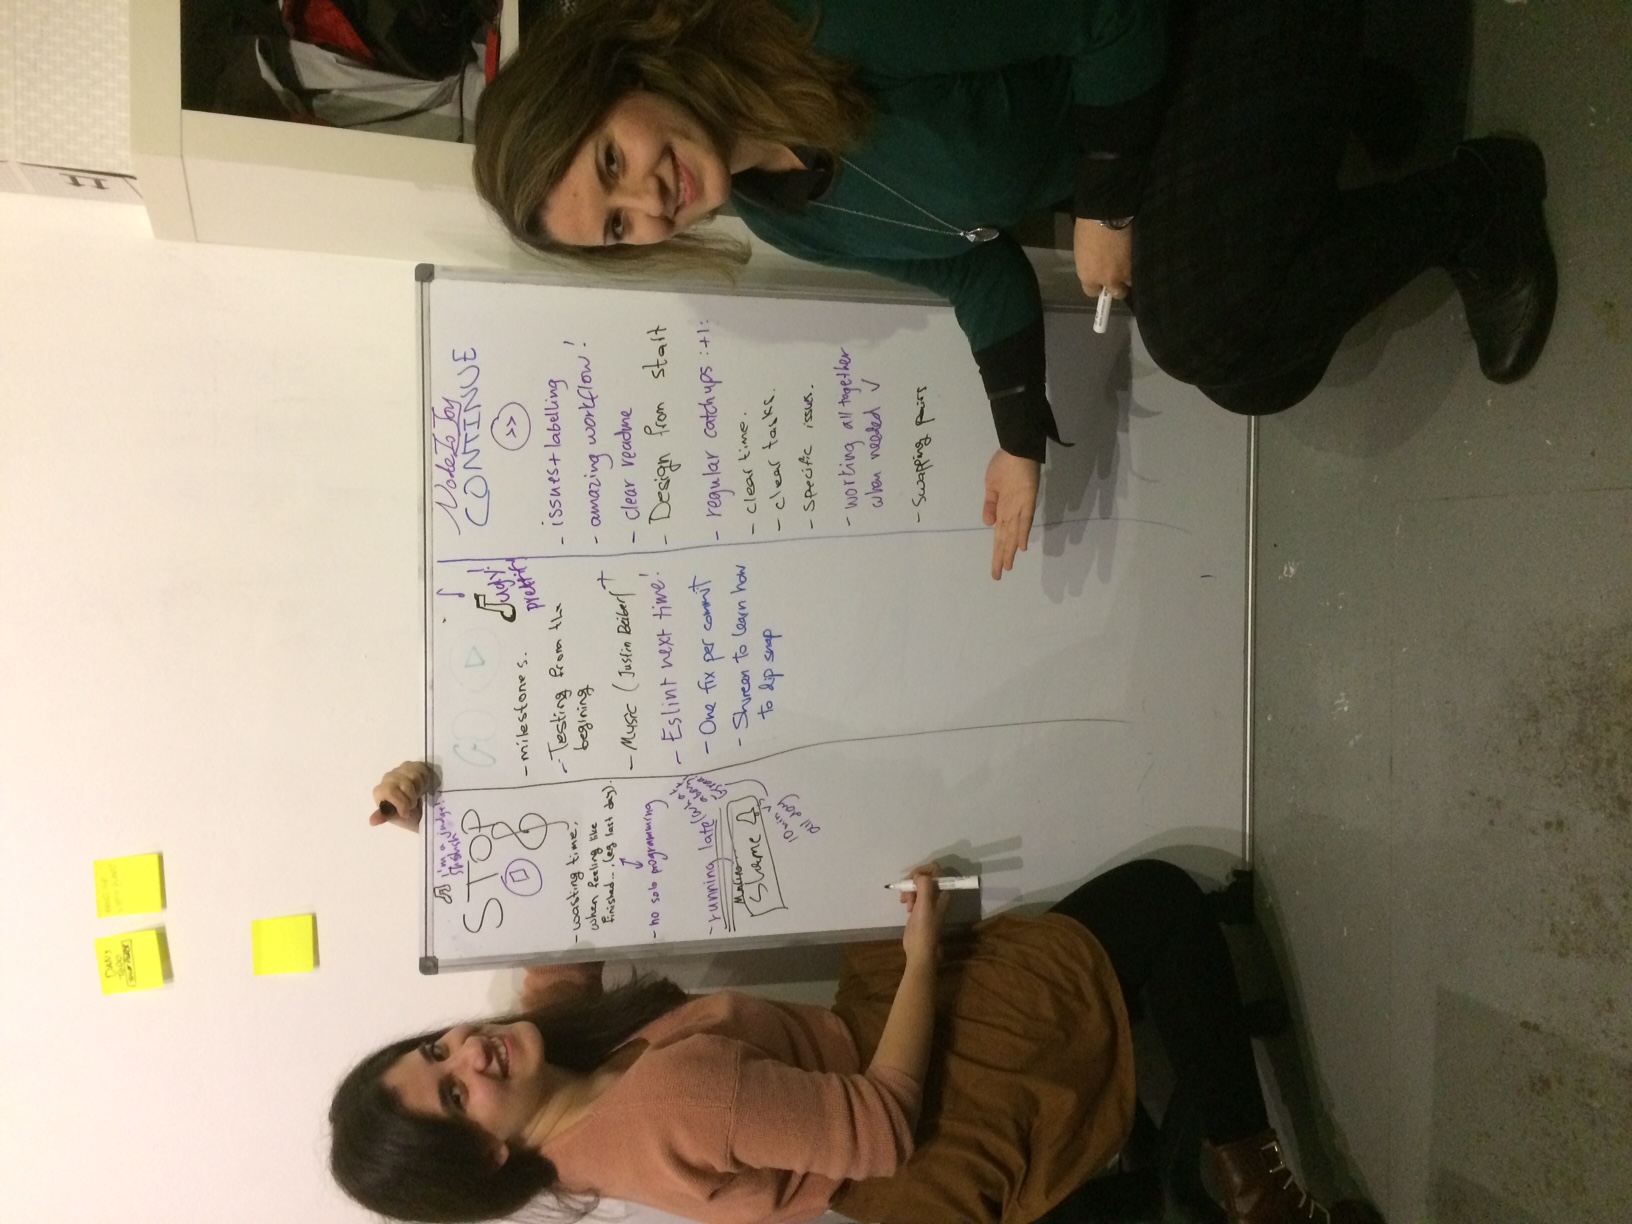 DANY
TODO
I'm a judge!
STOP
- wasting time,
when feeling like
finished... (eg last day).
- no solo programming
- running late (what
about
Shame
10 min
all day
GO
ugly!
prettify
- milestones.
- Testing from the
begining
- Music (Justin Beiber) +
- Eslint next time!
- One fix per commit
- Shireen to learn how
to dip snap
NodeIsJoy
CONTINUE
>>
- issues + labelling
- amazing workflow!
- clear readme
- Design from start
- regular catchups :+1:
- clear time.
- clear tasks.
- specific issues.
- working all together
when needed ✓
- Swapping pairs